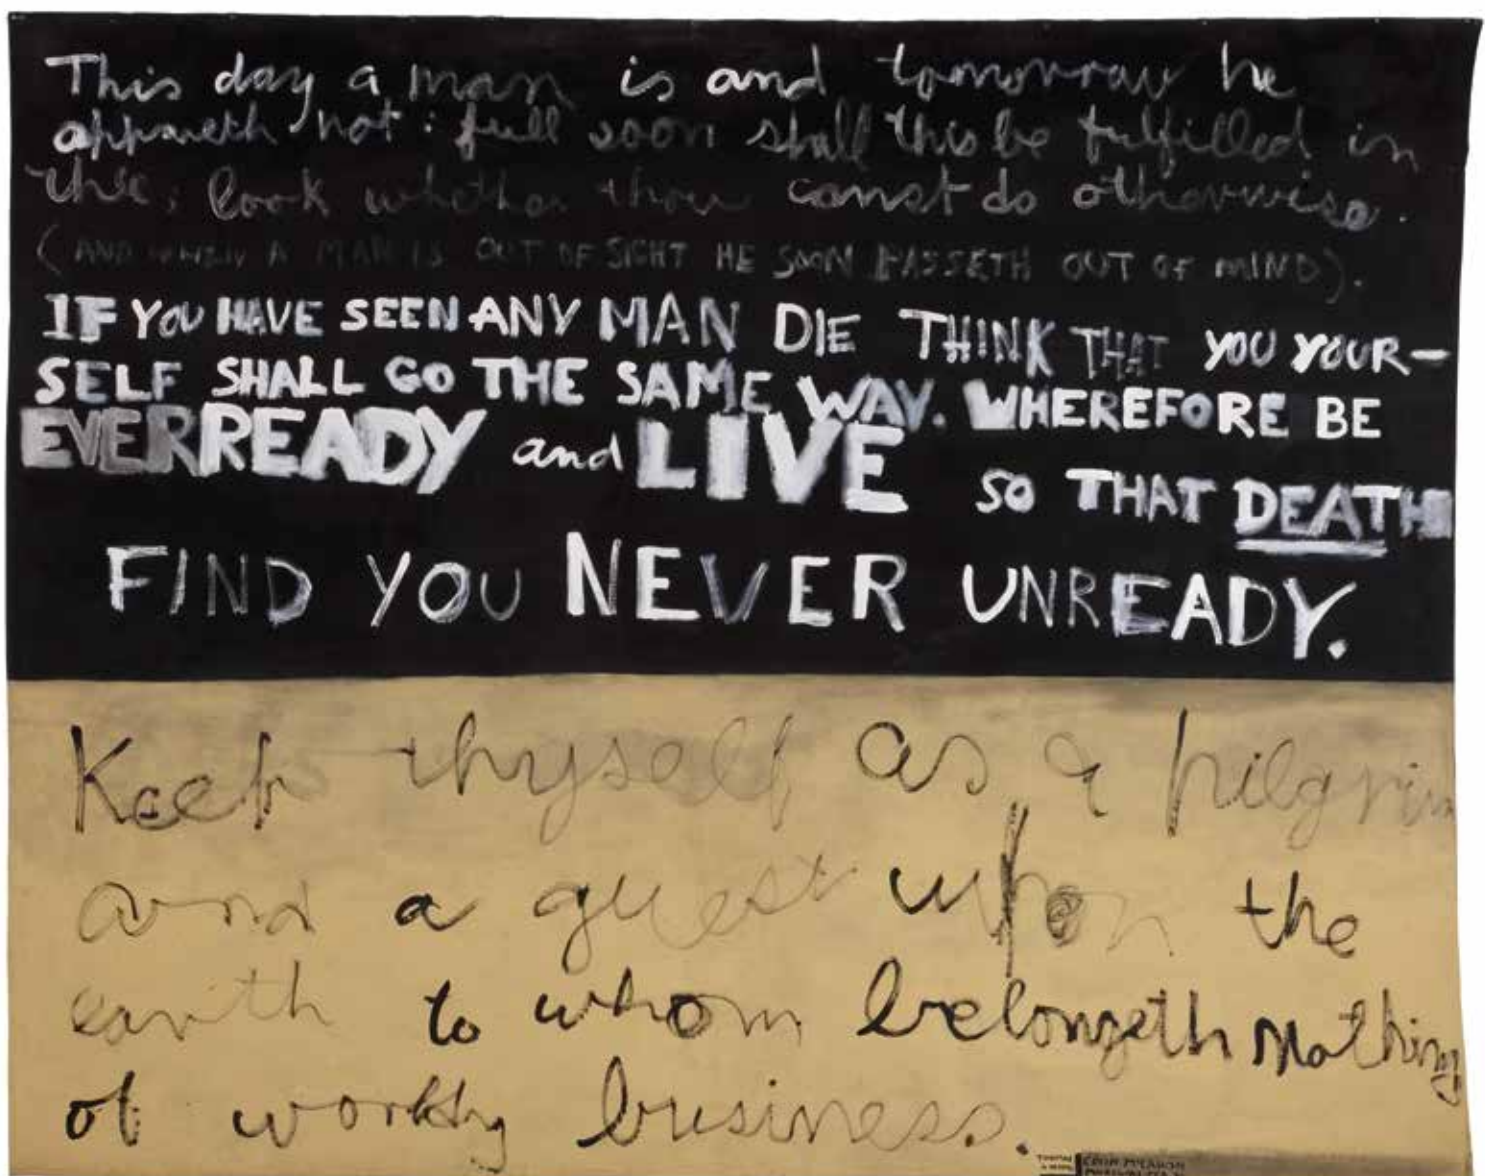 This day a man is and tomorrow he
appareth not: full soon shall this be fulfilled in
thee; look whether thou canst do otherwise.
(AND WHEN A MAN IS OUT OF SIGHT HE SOON PASSETH OUT OF MIND).
IF YOU HAVE SEEN ANY MAN DIE THINK THAT YOU YOUR-
SELF SHALL GO THE SAME WAY. WHEREFORE BE
EVERREADY and LIVE SO THAT DEATH
FIND YOU NEVER UNREADY.
Keep thyself as a pilgrim
and a guest upon the
earth to whom belongeth nothing
of worldly business.
COLIN McCAHON